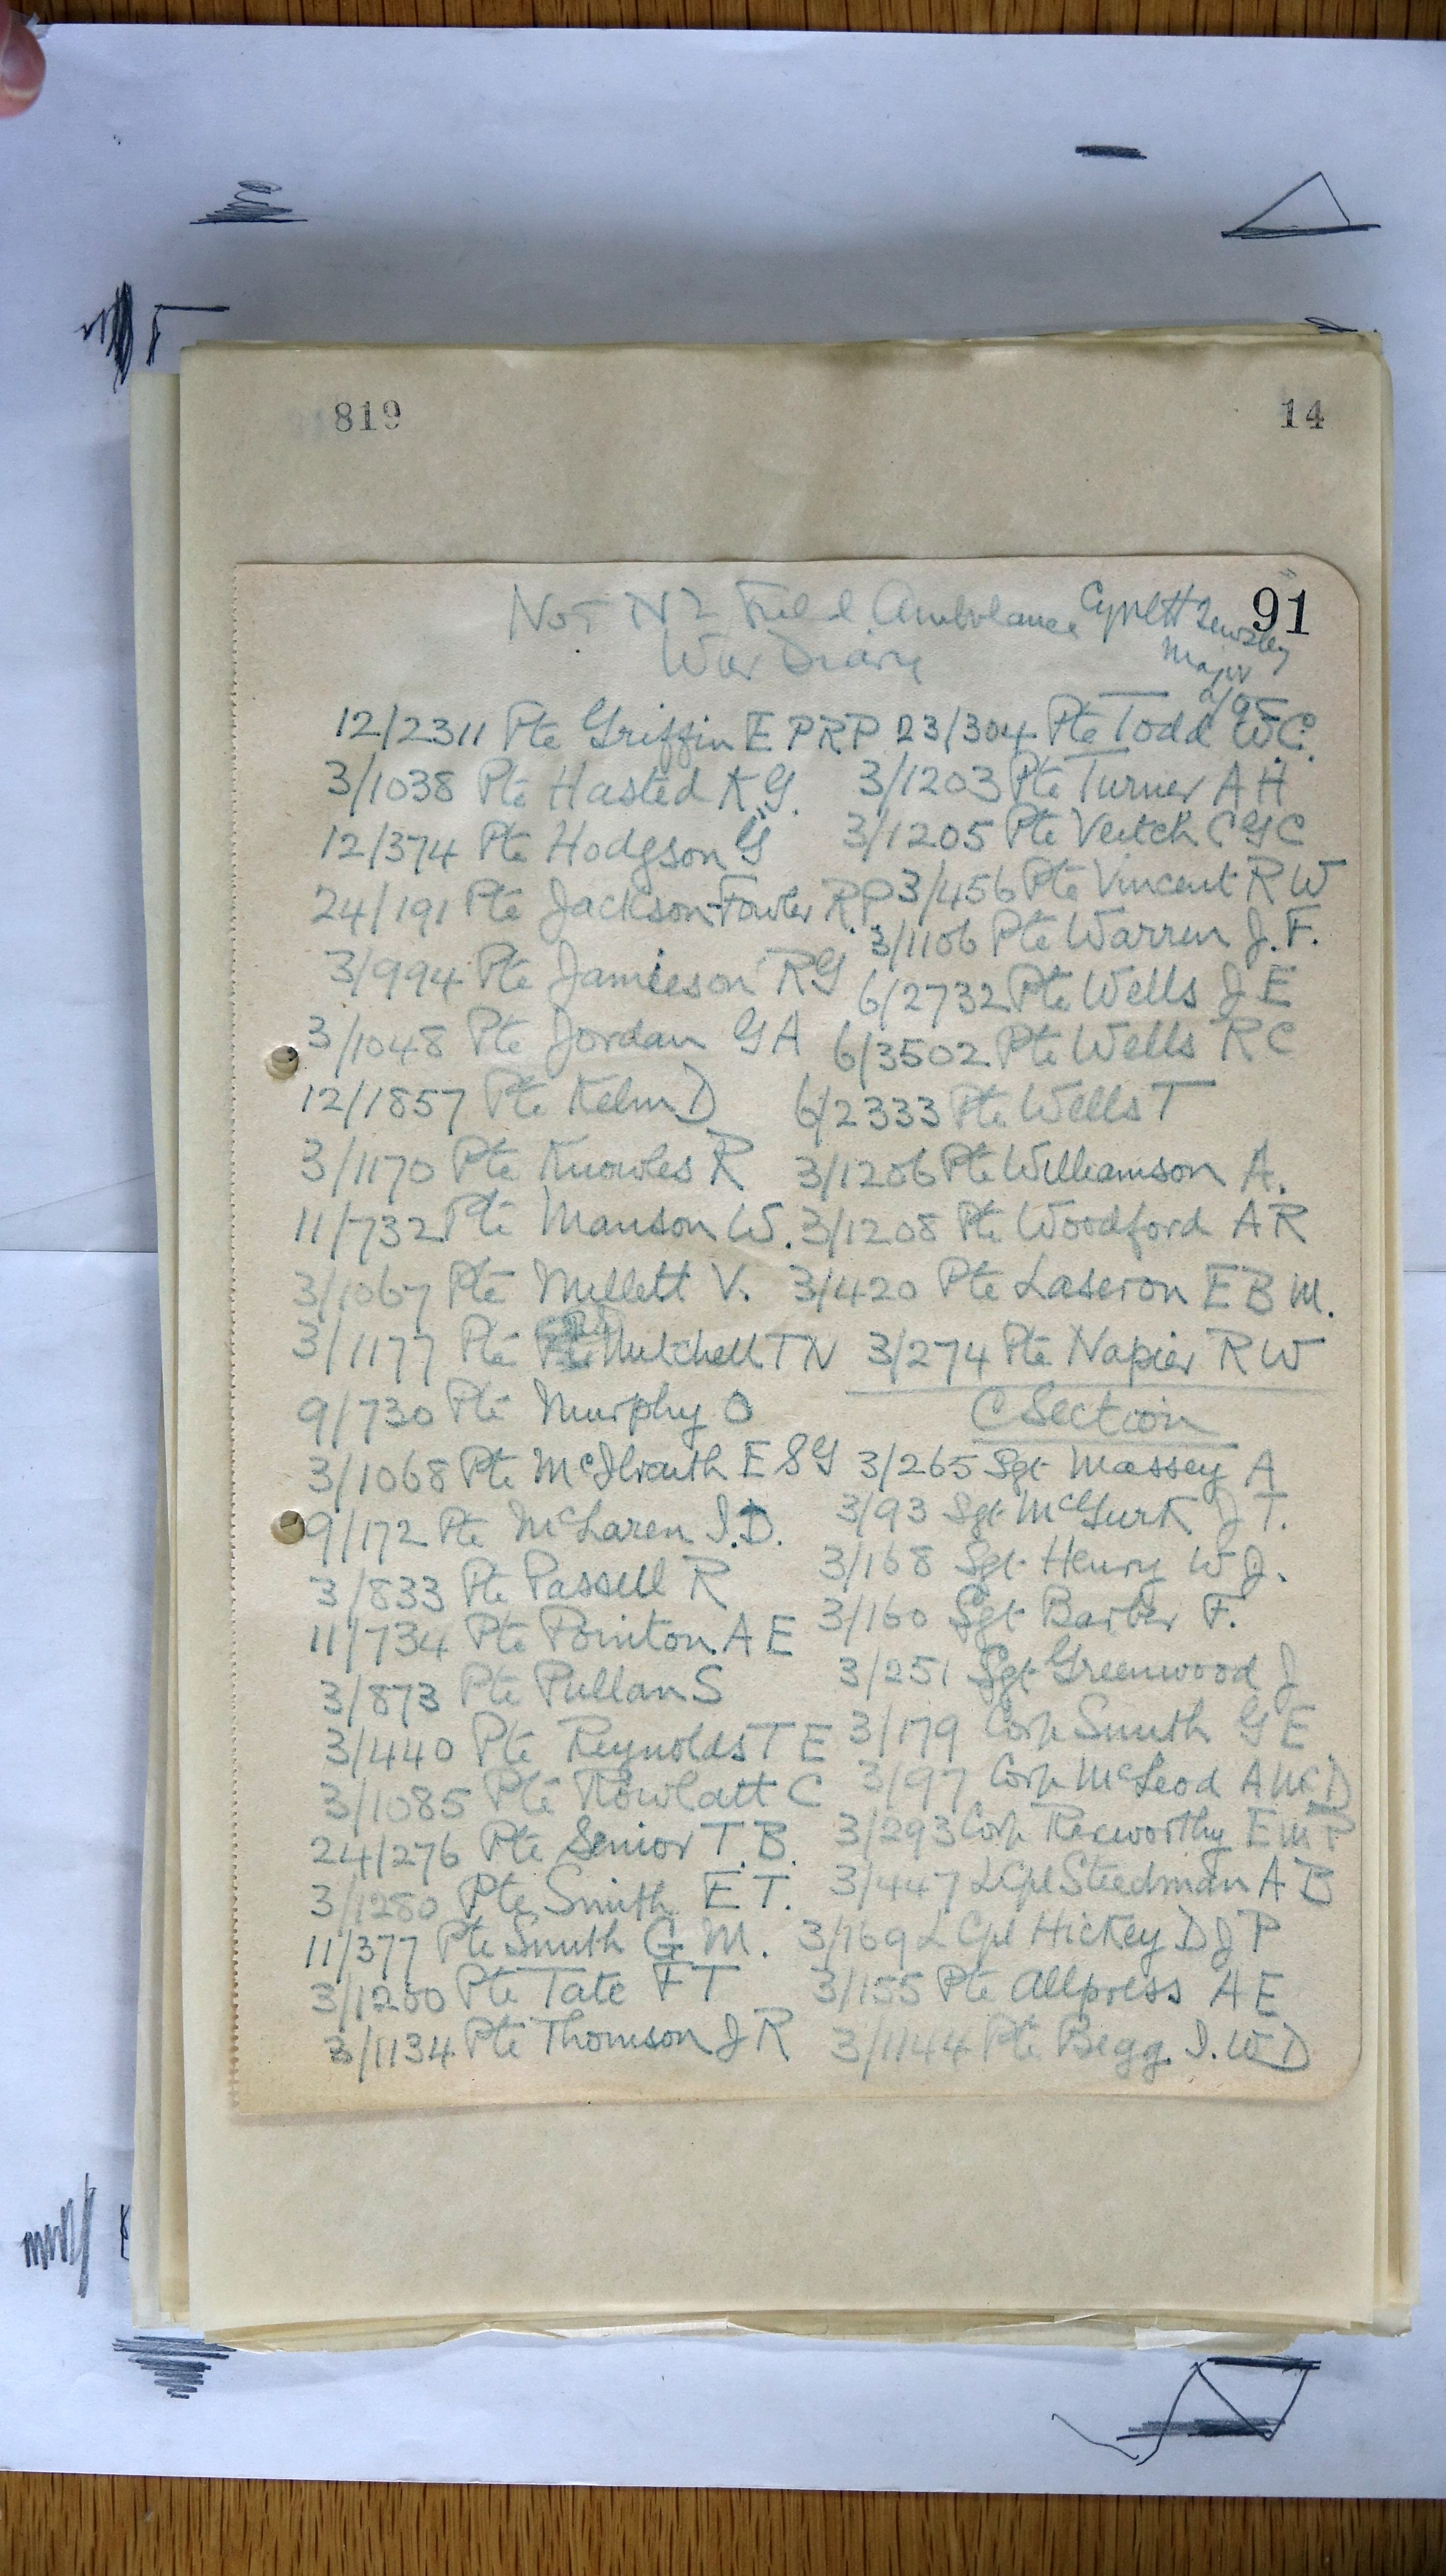 819
14
91
No 5 N Z Field Ambulance
War Diary
Major
12/2311 Pte Griffin E P R P
3/1038 Pte Hasted K G.
12/374 Pte Hodgson G
24/191 Pte Jackson-Fowler R.P
3/994 Pte Jamieson R G
3/1048 Pte Jordan G A
12/1857 Pte Kelm D
3/1170 Pte Knowles R
11/732 Pte Manson W.
3/1067 Pte Millett V.
3/1177 Pte Mitchell T N
9/730 Pte Murphy O
3/1068 Pte McIlraith E S G
9/172 Pte McLaren I.D.
3/833 Pte Passell R
11/734 Pte Pointon A E
3/873 Pte Pullan S
3/440 Pte Reynolds T E
3/1085 Pte Rowlatt C
24/276 Pte Senior T.B.
3/1280 Pte Smith E T.
11/377 Pte Smith G M.
3/1200 Pte Tate F T
3/1134 Pte Thomson J R
23/304 Pte Todd W.C.
3/1203 Pte Turner A H
3/1205 Pte Veitch C G C
3/456 Pte Vincent R W
3/1106 Pte Warren J. F.
6/2732 Pte Wells J E
6/3502 Pte Wells R C
6/2333 Pte Wells T
3/1206 Pte Williamson A.
3/1208 Pte Woodford A R
3/420 Pte Laseron E B M.
3/274 Pte Napier R W
C Section
3/265 Sgt Massey A
3/93 Sgt McGurk J T.
3/168 Sgt Henry W J.
3/160 Sgt Barber F.
3/251 Sgt Greenwood J
3/179 Corp Smith G E
3/97 Corp McLeod A McD
3/293 Corp Rexworthy E M P
3/447 L Cpl Steedman A B
3/169 L Cpl Hickey D J P
3/155 Pte Allpress A E
3/1144 Pte Begg I. W D